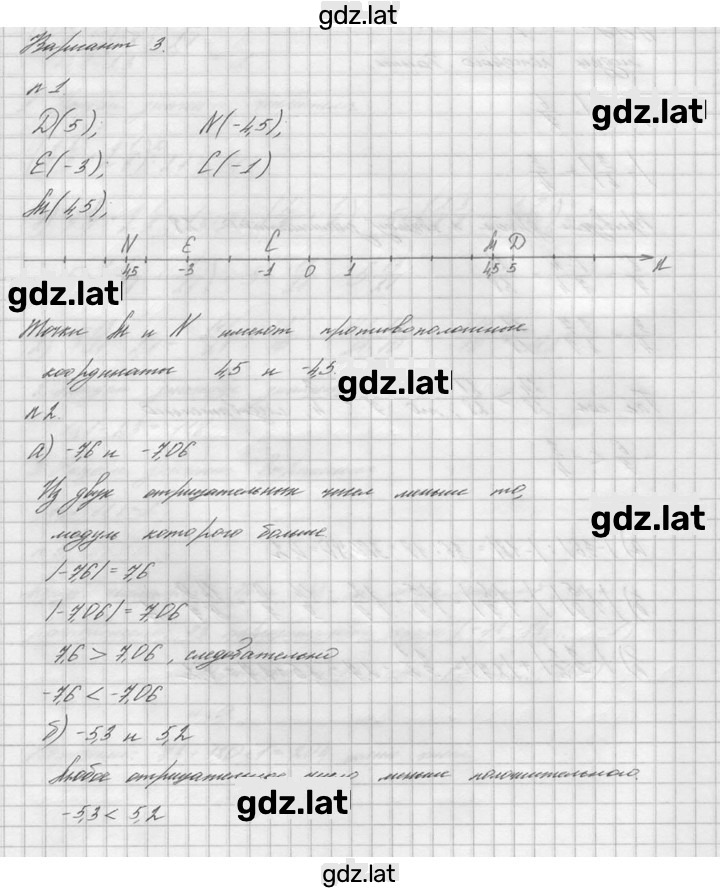 gdz.latl
Вариант 3.
n 1
gdz.latl
D(5); N(-4,5);
E(-3); C(-1)
M(4,5);
N E C M D
4,5 -3 -1 0 1 4,5 5
gdz.latl
Точки M и N имеют противоположные
координаты 4,5 и -4,5.
gdz.latl
n 2
а) -7,6 и -7,06
Из двух отрицательных чисел меньше то,
gdz.latl
модуль которого больше
|-7,6| = 7,6
|-7,06| = 7,06
7,6 > 7,06, следовательно
-7,6 < -7,06
б) -5,3 и 5,2
Любое отрицательное число меньше положительного.
gdz.latl
-5,3 < 5,2
gdz.latl